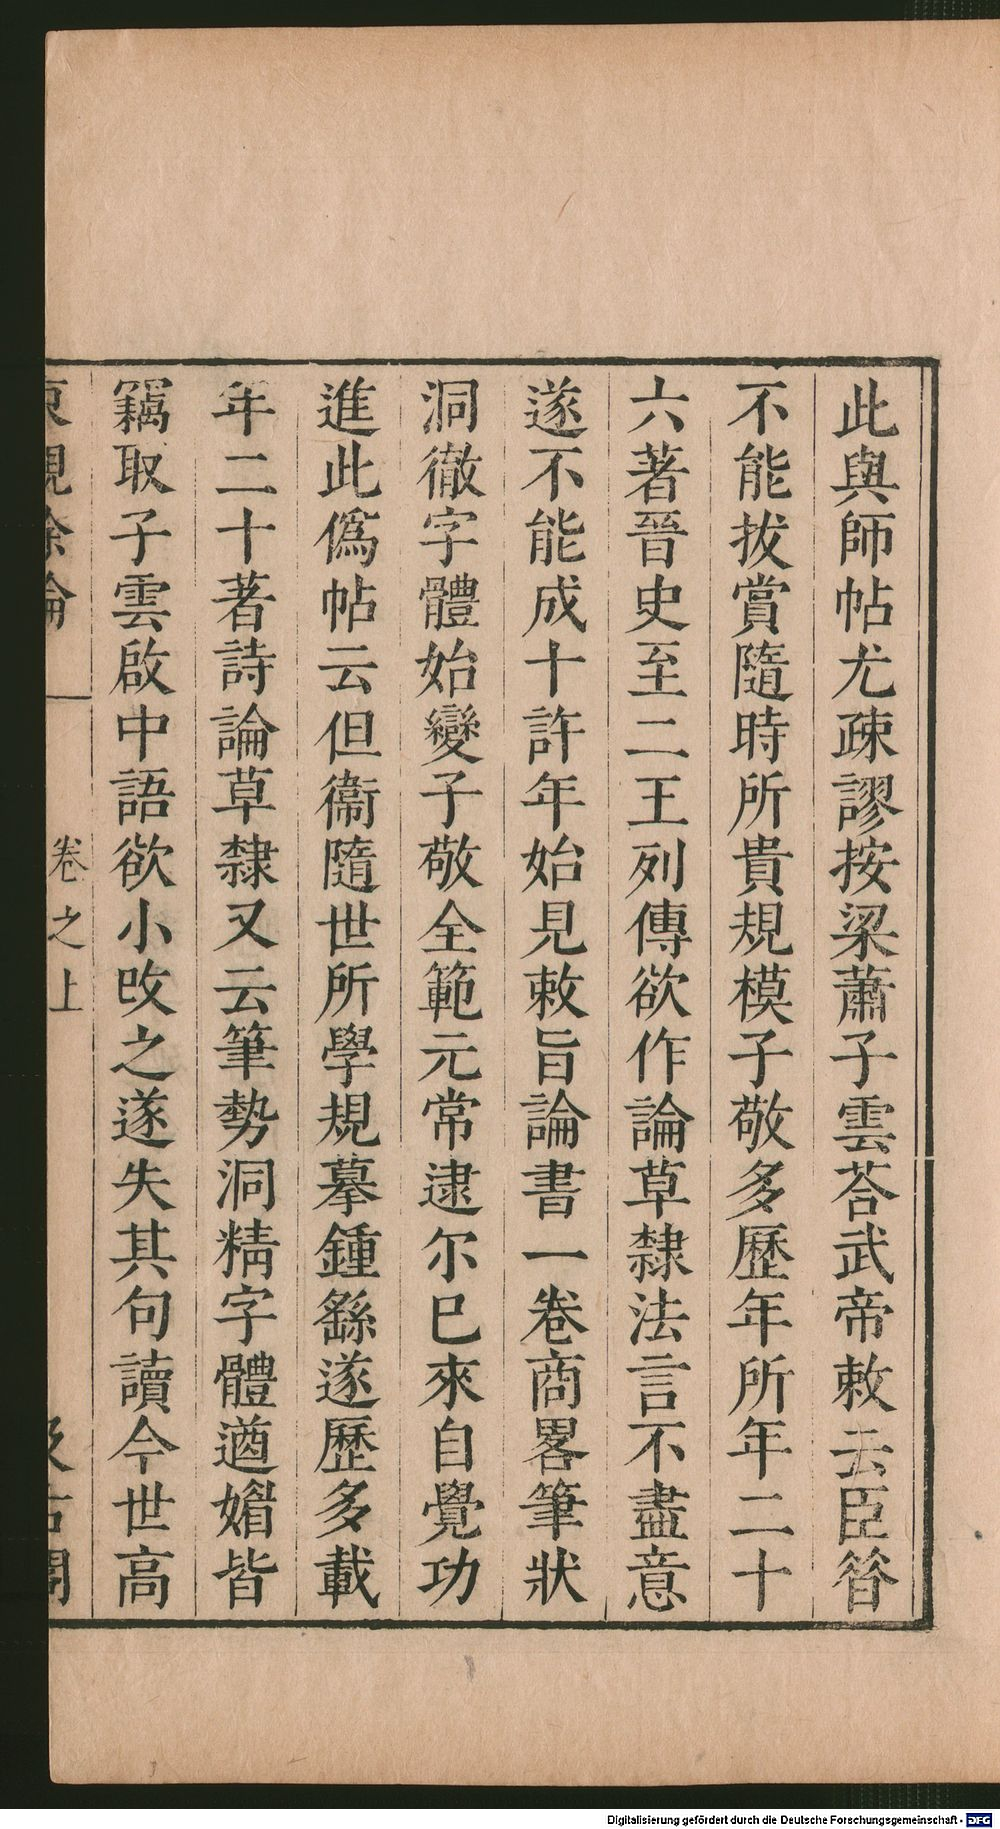 此與師帖尤疎謬按梁蕭子雲荅武帝敕云臣昝
不能拔賞隨時所貴規模子敬多歷年所年二十
六著晉史至二王列傳欲作論草隸法言不盡意
遂不能成十許年始見敕旨論書一卷商畧筆狀
洞徹字體始變子敬全範元常逮尔巳來自覺功
進此僞帖云但衞隨世所學規摹鍾繇遂歷多載
年二十著詩論草隸又云筆勢洞精字體遒媚皆
竊取子雲啟中語欲小改之遂失其句讀今世高
東觀餘論 卷之上 汲古閣
Digitalisierung gefördert durch die Deutsche Forschungsgemeinschaft - DFG